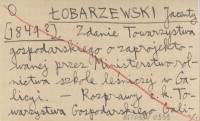 ŁOBARZEWSKI Jacenty
[1849?] Zdanie Towarzystwa
gospodarskiego o zaprojekto-
wanej przez Ministerstwo rol-
nictwa szkole leśniczej w Ga-
licyi. Rozprawy c. k. To-
warzystwa Gospodarskiego Gali-